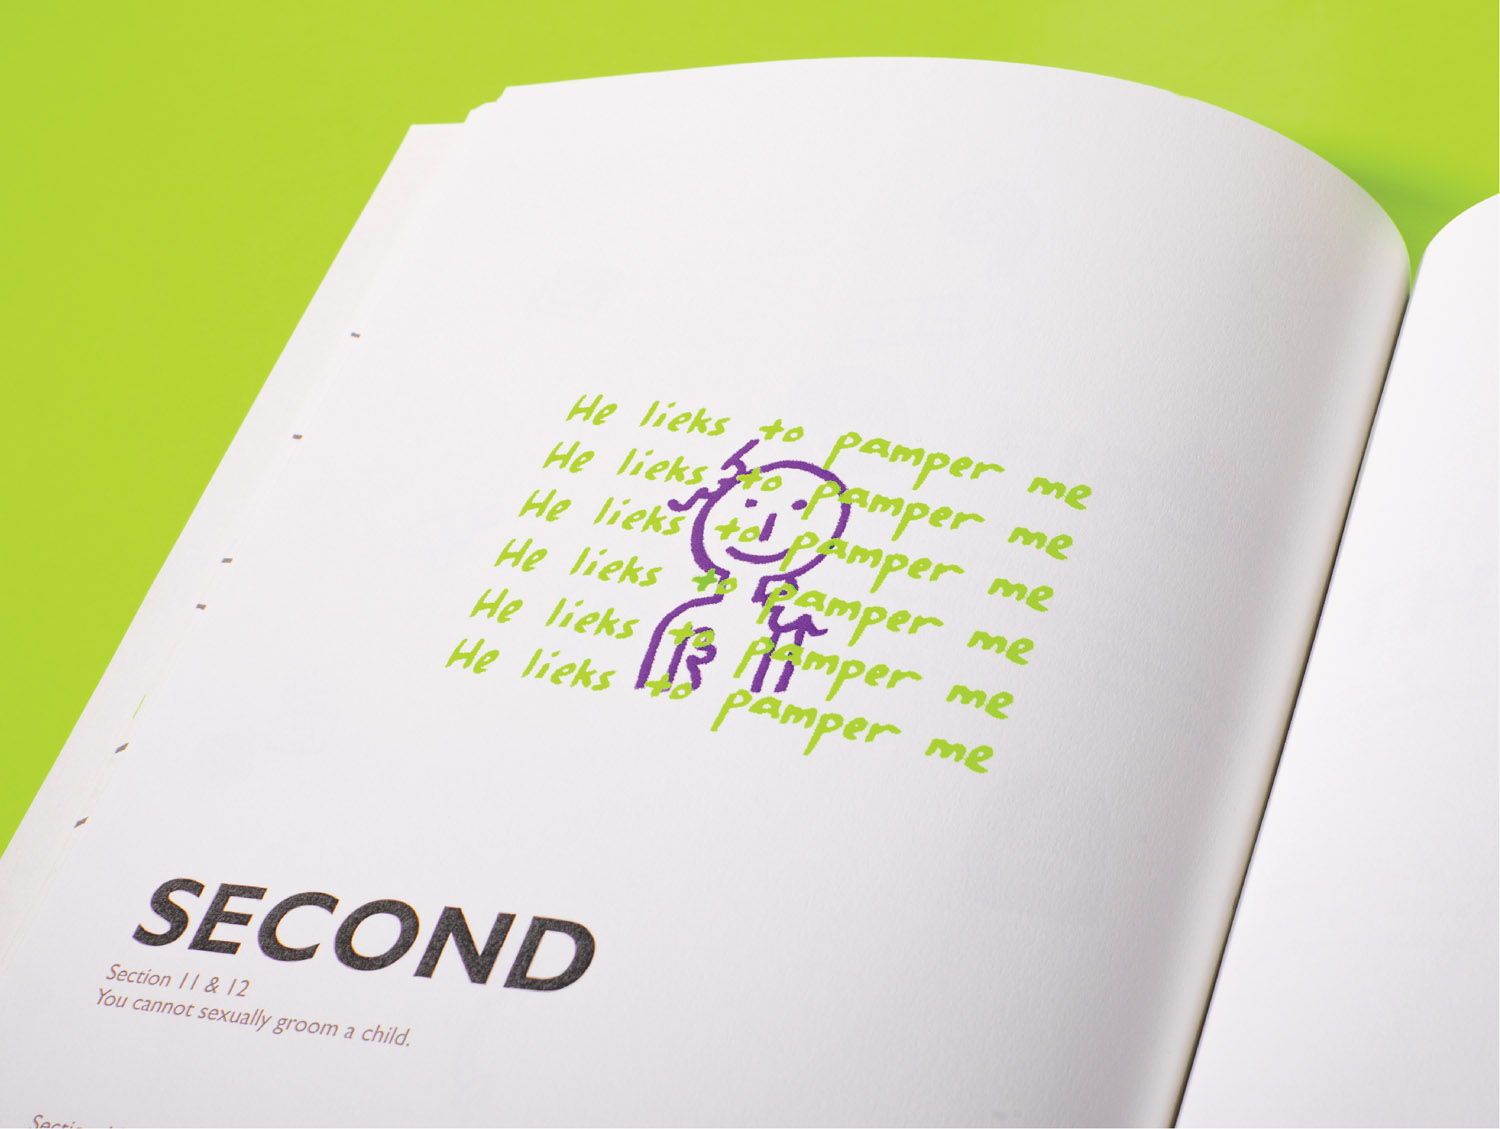 He lieks to pamper me
He lieks to pamper me
He lieks to pamper me
He lieks to pamper me
He lieks to pamper me
He lieks to pamper me
SECOND
Section 11 & 12
You cannot sexually groom a child.